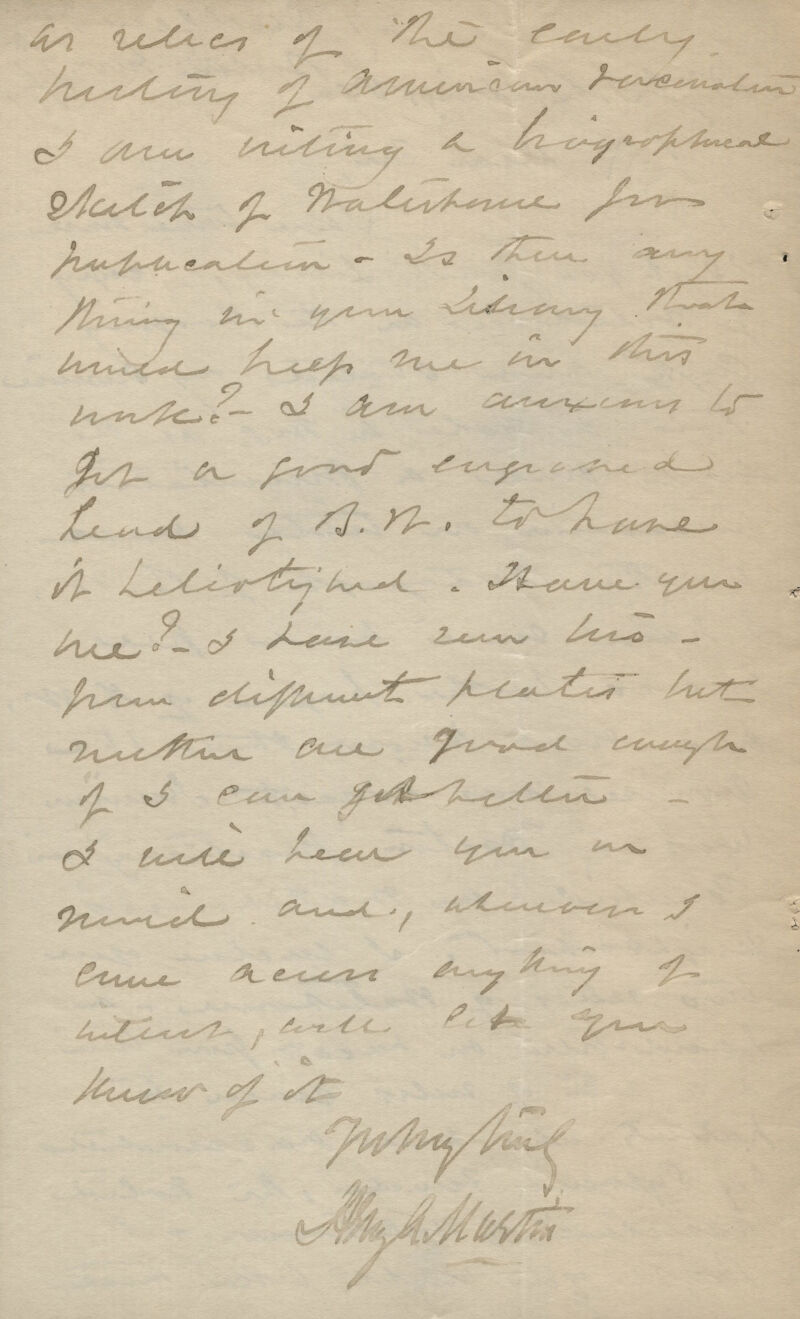 as relics of the early
history of American Vaccination
I am writing a biographical
sketch of Waterhouse for
publication - Is there any
thing in your Library that
would help me in this
work? - I am anxious to
get a good engraved
head of B.W. to have
it heliotyped. Have you
one? - I have seen two -
from different plates but
neither are good enough
if I can get better -
I will bear you in
mind and, whenever I
come across anything of
interest, will let you
know of it
Very truly
Henry A Martin